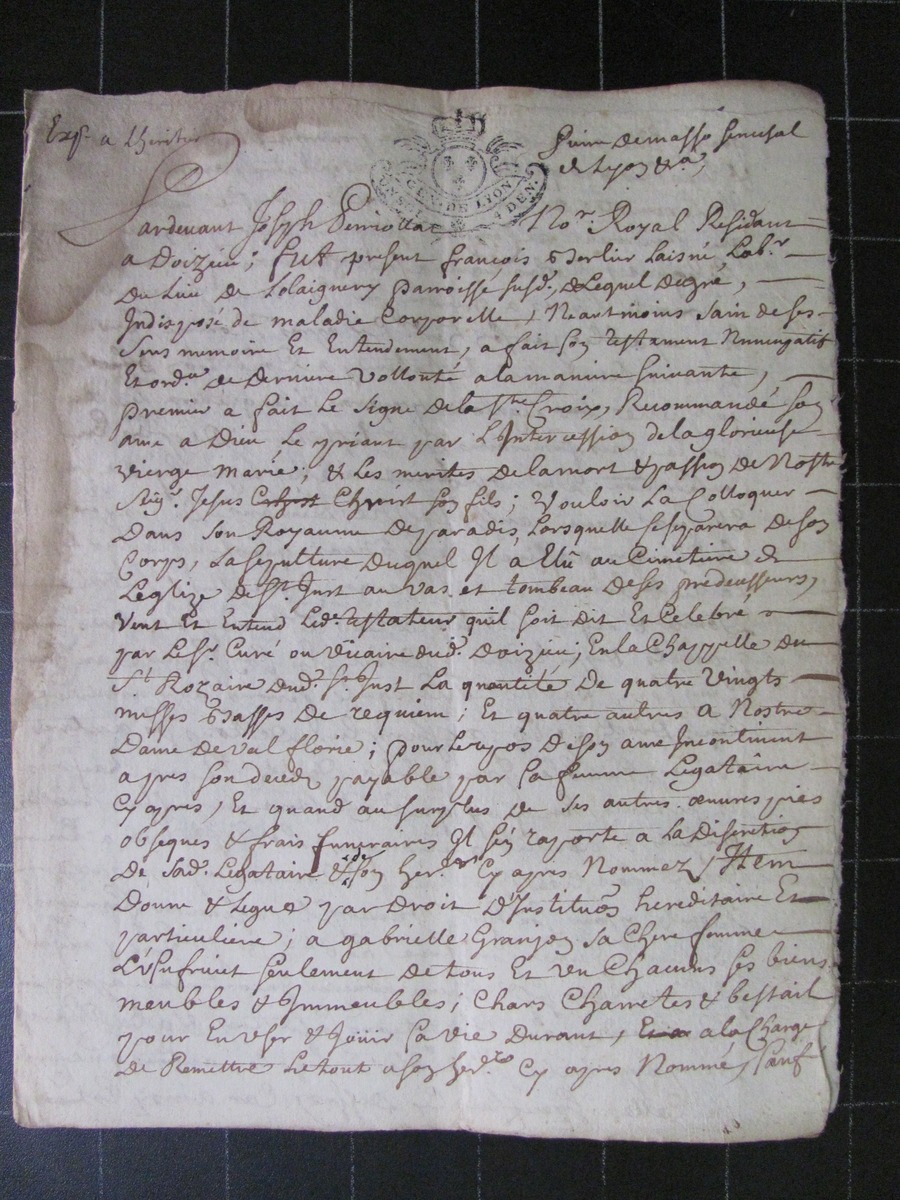 Exp. a Lheritier
Pierre de masso senechal
de Lyon &a,
GEN. DE LION
4 DEN.
Pardevant Joseph Perriollat No.r Royal Residant
a Doizieu; fut present françois Berlier Laisné, Lab.r
Du Lieu de Parroisse susd., Lequel de gré,
Indisposé de maladie Corporelle, Neantmoins Sain de ses
Sens memoire Et Entendement, a fait son testament Nuncupatif
Et ord.re de derniere Vollonté a la maniere suivante,
premier a fait Le signe de la Ste Croix, Recommandé son
ame a Dieu Le priant par L'Intercession de la glorieuse
vierge marie; & Les merites de la mort & passion de Nostre
Seig.r Jesus Christ Christ son fils; Vouloir La Colloquer
Dans son Royaume de paradis Lorsquelle se separera de son
Corps, La sepulture duquel Il a Elû au Cimetiere de
Leglize de St. Just au vas et tombeau de ses predecesseurs,
Veut Et Entend Led. testateur quil soit dit Et Celebré
par Le Sr. Curé ou Vicaire dud. Doizieu; En la Chappelle du
St. Rozaire dud. St. Just La quantité de quatre vingts
messes Basses de requiem; Et quatre autres a Nostre
Dame de val florie; pour Le repos de son ame Incontinent
apres son decedz payable par sa femme Legataire
Cy apres, Et quand au surplus de ses autres œuvres pies
obseques & frais funeraires Il s'en raporte a La Discretion
De sad. Legataire & son her.er Cy apres Nommez, Item
Donne & Legue par Droit D'Institu.on hereditaire Et
particuliere; a gabrielle Granjon sa Chere femme
L'Usufruict seulement de tous Et un Chacuns ses biens
meubles & Immeubles; Chars Charretes & bestail
pour En User & Joüir sa vie Durant, a la Charge
de Remettre Le tout a son her.er Cy apres Nommé, sauf